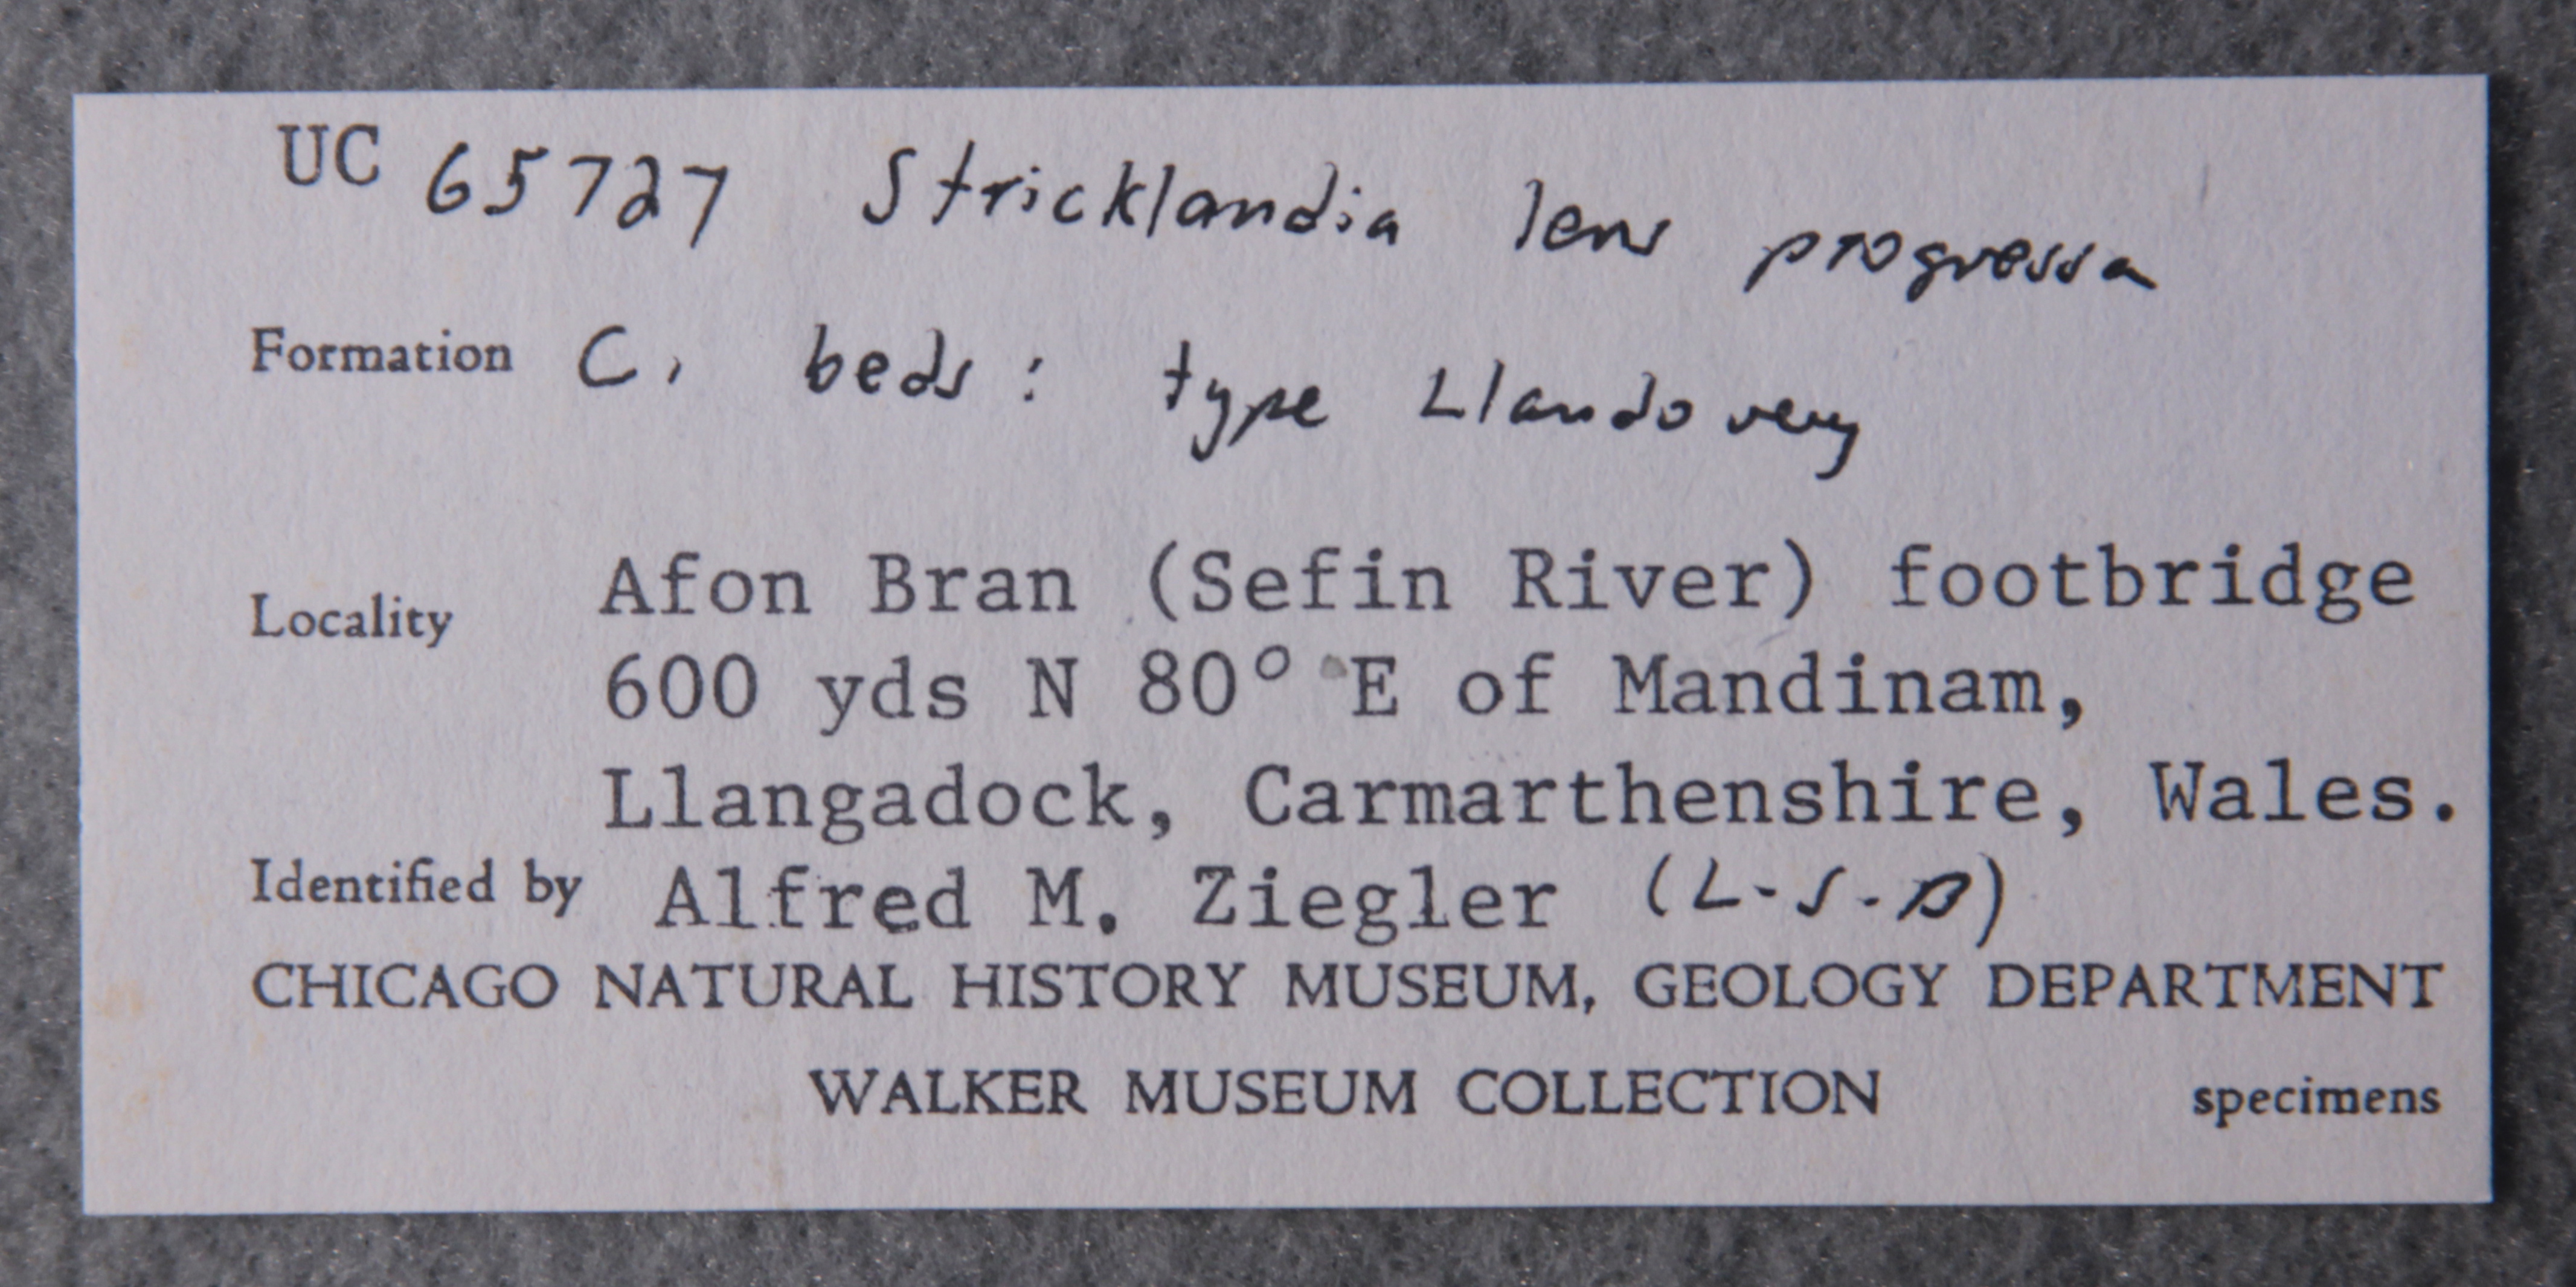 UC 65727 Stricklandia lens progressa
Formation C₁ beds: type Llandovery
Locality Afon Bran (Sefin River) footbridge
600 yds N 80° E of Mandinam,
Llangadock, Carmarthenshire, Wales.
Identified by Alfred M. Ziegler (L-S-B)
CHICAGO NATURAL HISTORY MUSEUM, GEOLOGY DEPARTMENT
WALKER MUSEUM COLLECTION specimens